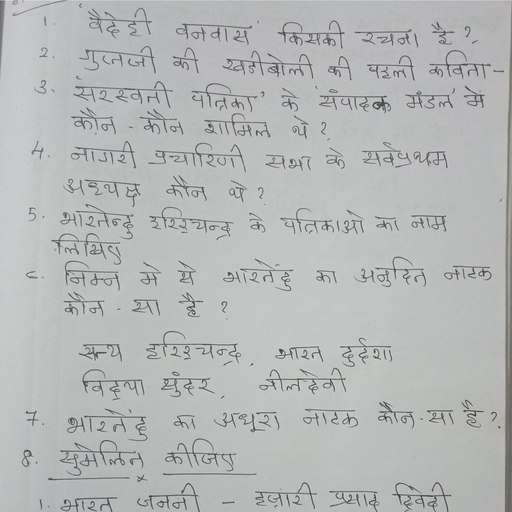 1. 'वैदेही वनवास' किसकी रचना है ?
2. गुप्तजी की खडीबोली की पहली कविता -
3. 'सरस्वती पत्रिका' के 'संपादक मंडल' में
कौन - कौन शामिल थे ?
4. नागरी प्रचारिणी सभा के सर्वप्रथम
अध्यक्ष कौन थे ?
5. भारतेन्दु हरिश्चन्द्र के पत्रिकाओ का नाम
लिखिए
c. निम्न मे से भारतेंदु का अनुदित नाटक
कौन - सा है ?
सत्य हरिश्चन्द्र, भारत दुर्दशा
विद्या सुंदर, नीलदेवी
7. भारतेंदु का अधूरा नाटक कौन-सा है ?
8. सुमेलित कीजिए
x
1. भारत जननी - हज़ारी प्रसाद द्विवेदी